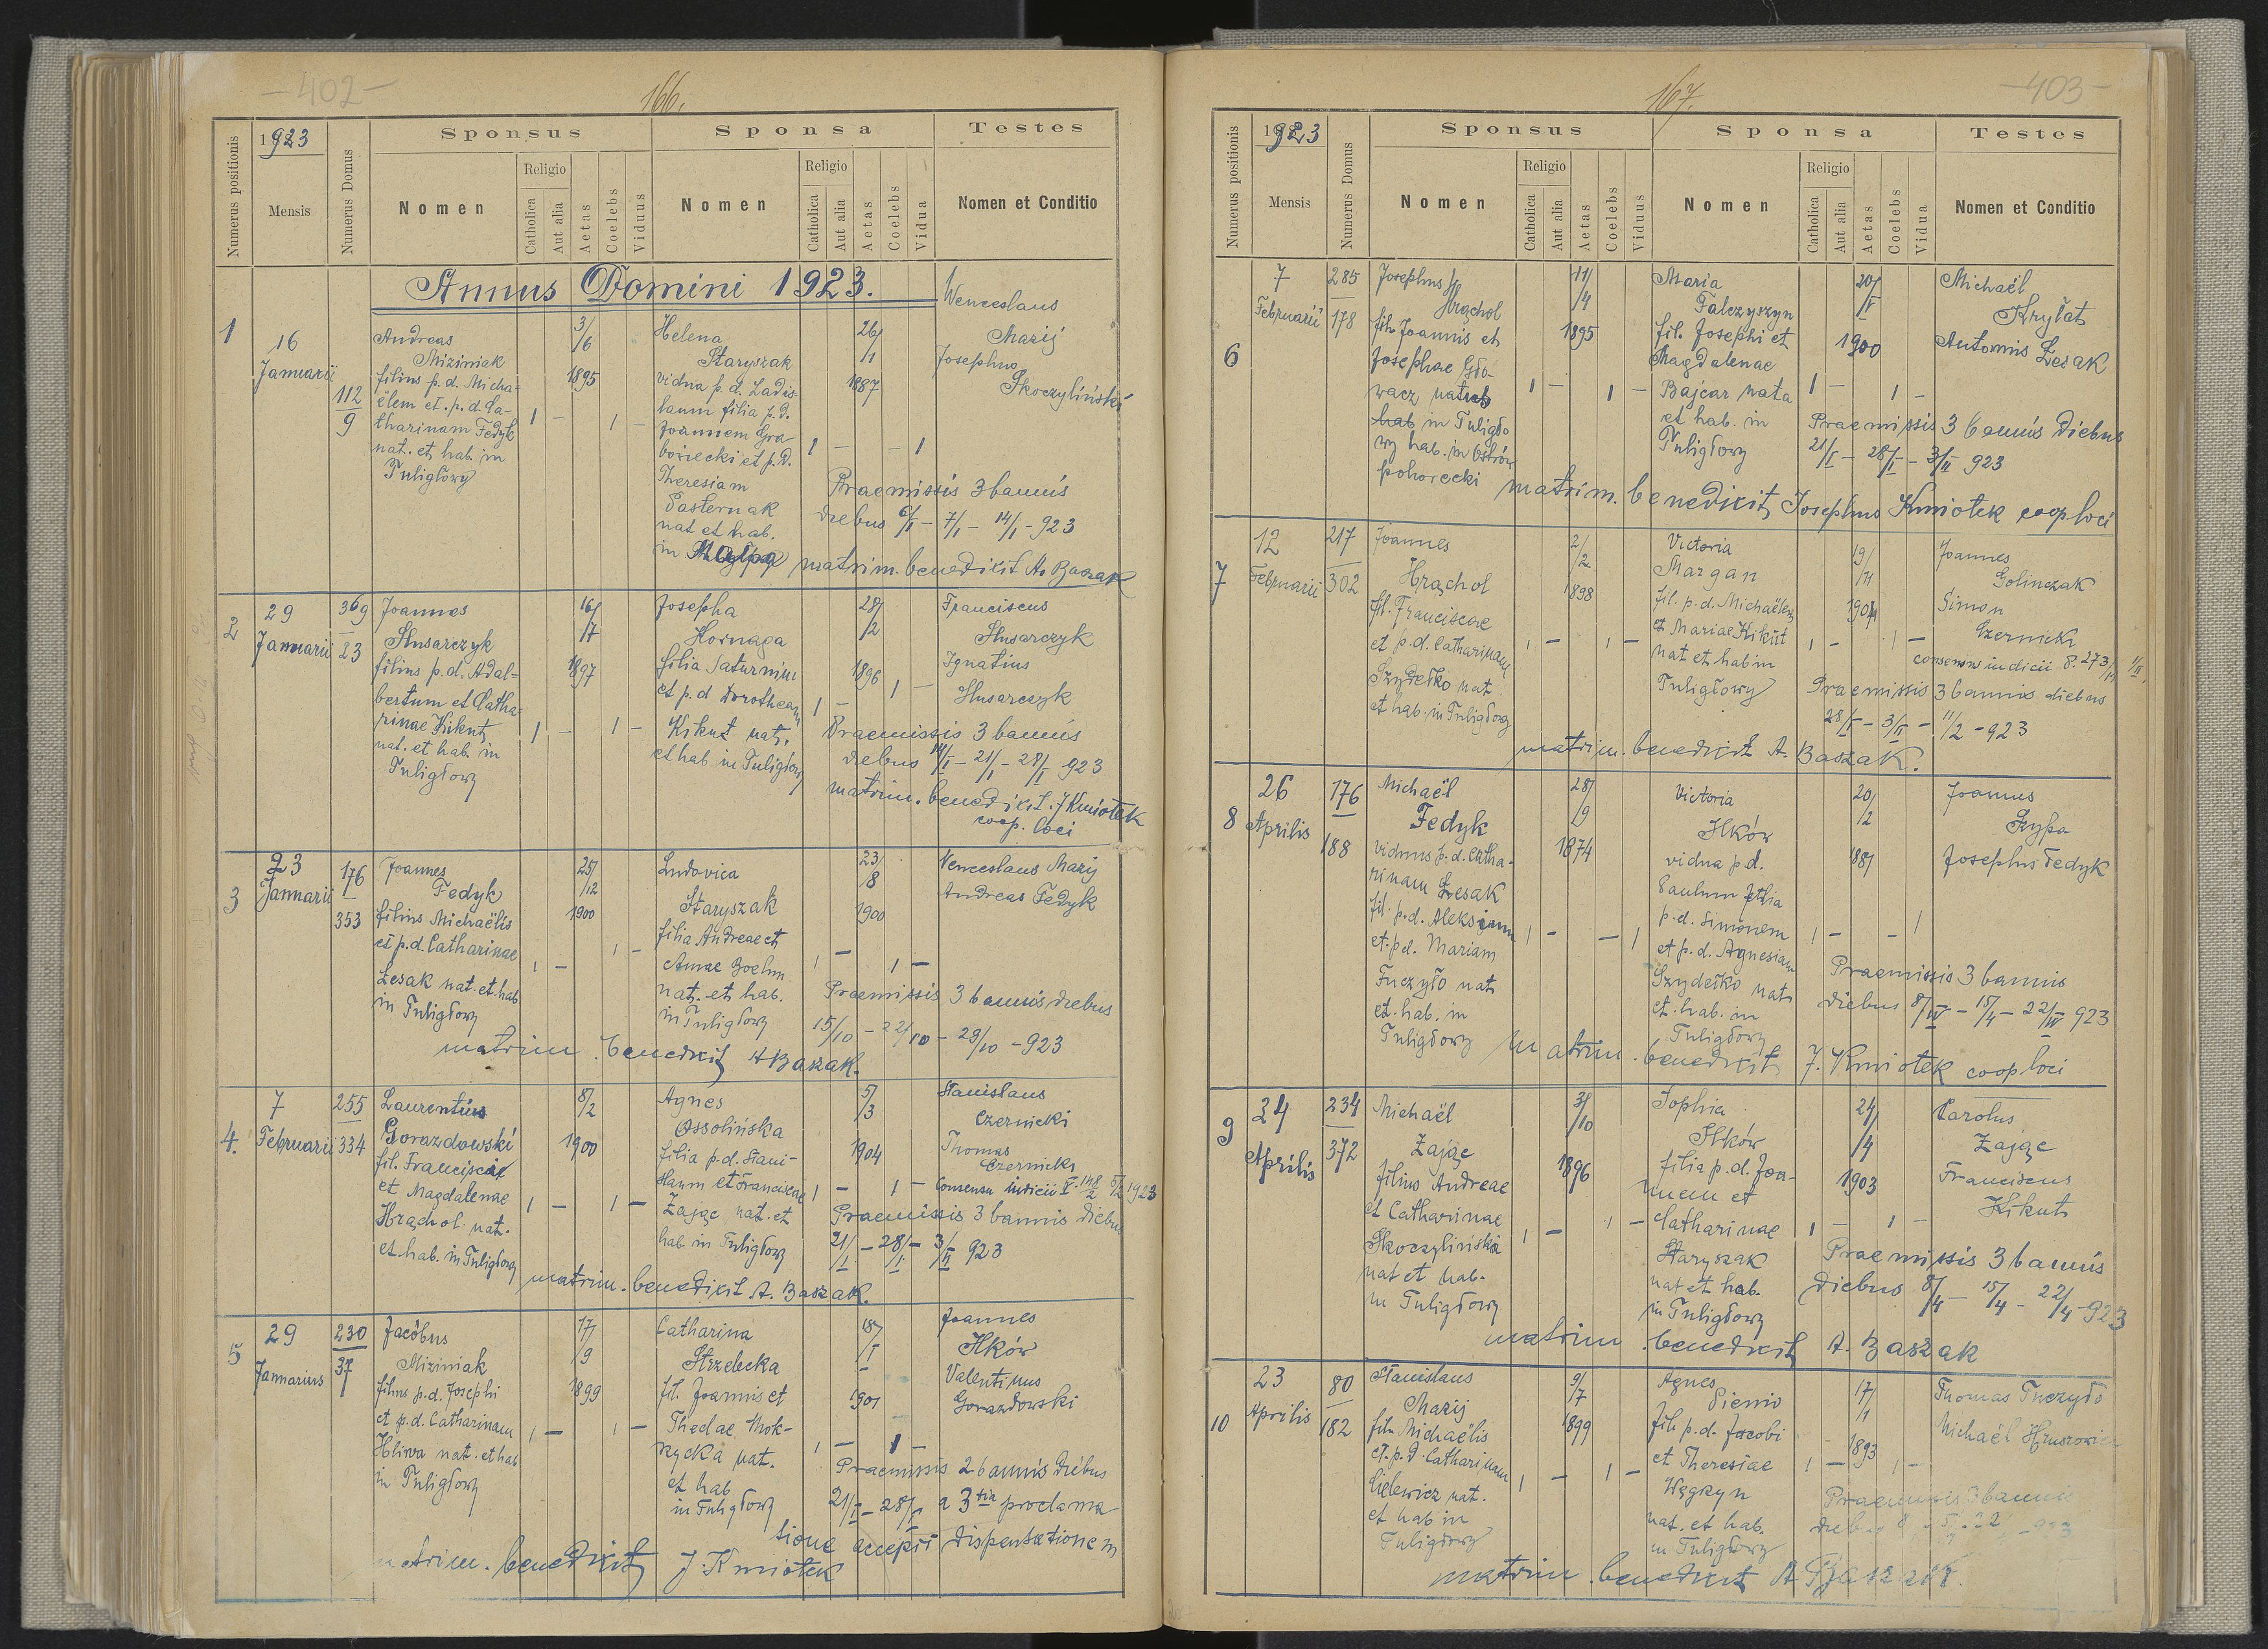 - 402 -
166.
Numerus positionis
1923
Mensis
Numerus Domus
Sponsus
Nomen
Religio
Catholica
Aut alia
Aetas
Coelebs
Viduus
Sponsa
Nomen
Religio
Catholica
Aut alia
Aetas
Coelebs
Vidua
Testes
Nomen et Conditio
Annus Domini 1923.
1
16
Januarii
112
9
Andreas
Miziniak
filius p.d. Micha-
ëlem et p.d. Ca-
tharinam Fedyk
nat. et hab. in
Tuligłowy
1 -
3/6
1895
1 -
Helena
Staryszak
vidua p.d. Ladis-
laum filia p.d.
Joannem Gra
bowiecki et p.d.
Theresiam
Pasternak
nat et hab.
in
1 -
26/1
1887
- 1
Wenceslaus
Mazij
Josephus
Skoczyliński
Praemissis 3 bannis
diebus 6/I - 7/I - 14/I - 923
matrim. benedixit A. Baszak
2
29
Januarii
369
23
Joannes
Slusarczyk
filius p.d. Adal-
bertum et Catha-
rinae Kikut
nat. et hab. in
Tuligłowy
1 -
16/7
1897
1 -
Josepha
Hornaga
filia Saturnini
et p.d Dorotheam
Kikut nat.
et hab in Tuligłowy
1 -
28/2
1896
1 -
Franciscus
Slusarczyk
Ignatius
Slusarczyk
Praemissis 3 bannis
diebus 14/I - 21/I - 28/I 923
matrim. benedixit. J Kmiotek
coop. loci
3
23
Januarii
176
353
Joannes
Fedyk
filius Michaëlis
et p.d. Catharinae
Łesak nat. et hab
in Tuligłowy
1 -
25/12
1900
1 -
Ludovica
Staryszak
filia Andreae et
Annae Boehm
nat. et hab.
in Tuligłowy
1 -
23/8
1900
1 -
Wenceslaus Mazij
Andreas Fedyk
Praemissis 3 bannis diebus
15/10 - 22/10 - 29/10 - 923
matrim. benedixit A Baszak.
4.
7
Februarii
255
334
Laurentius
Gorazdowski
fil. Franciscae
et Magdalenae
Hrąchol nat.
et hab. in Tuligłowy
1 -
8/2
1900
1 -
Agnes
Ossolińska
filia p.d. Stani-
slaum et Franciscae
Zając nat. et
hab in Tuligłowy
1 -
5/3
1904
1 -
Stanislaus
Czernicki
Thomas
Czernicki
Consensu iudicii
Praemissis 3 bannis diebus
21/I - 28/I - 3/II 923
matrim. benedixit A. Baszak.
5
29
Januarius
230
37
Jacobus
Miziniak
filius p.d. Josephi
et p.d. Catharinam
Hliwa nat. et hab
in Tuligłowy
1 -
17/9
1899
1 -
Catharina
Strzelecka
fil. Joannis et
Theclae Mok-
rycka nat.
et hab
in Tuligłowy
1 -
18/I
1901
1 -
Joannes
Ilków
Valentinus
Gorazdowski
Praemissis 2 bannis diebus
21/I - 28/I a 3tia proclama
tione accepii dispensationem
matrim. benedixit J. Kmiotek
- 403 -
167.
Numerus positionis
1923
Mensis
Numerus Domus
Sponsus
Nomen
Religio
Catholica
Aut alia
Aetas
Coelebs
Viduus
Sponsa
Nomen
Religio
Catholica
Aut alia
Aetas
Coelebs
Vidua
Testes
Nomen et Conditio
6
7
Februarii
285
178
Josephus
Hrąchol
fil. Joannis et
Josephae Gło-
wacz natus
hab in Tuligło
wy hab. in Ostrów
pohorecki
1 -
11/4
1895
1 -
Maria
Falczyszyn
fil. Josephi et
Magdalenae
Bajcar nata
et hab. in
Tuligłowy
1 -
20/I
1900
1 -
Michaël
Kryłat
Antonius Łesak
Praemissis 3 bannis diebus
21/I - 28/I - 3/II 923
matrim. benedixit Josephus Kmiotek coop loci
7
12
Februarii
217
302
Joannes
Hrąchol
fil. Franciscae
et p.d. Catharinam
Szydełko nat.
et hab. in Tuligłowy
1 -
2/2
1898
1 -
Victoria
Margan
fil. p.d. Michaëlem
et Mariae Kikut
nat et hab in
Tuligłowy
1 -
19/11
1904
1 -
Joannes
Golinczak
Simon
Czernicki
consensus iudicii P. 273/
Praemissis 3 bannis diebus
28/I - 3/II - 11/2 - 923
matrim. benedixit A. Baszak.
8
26
Aprilis
176
188
Michaël
Fedyk
viduus p.d. Catha-
rinam Łesak
fil. p.d. Aleksium
et p.d. Mariam
Tuczyło nat
et. hab. in
Tuligłowy
1 -
28/9
1874
- 1
Victoria
Ilków
vidua p.d.
Paulum filia
p.d. Simonem
et p.d. Agnesiam
Szydełko nat
et. hab. in
Tuligłowy
1 -
20/2
1887
- 1
Joannes
Szypa
Josephus Fedyk
Praemissis 3 bannis
diebus 8/IV - 15/4 - 22/IV 923
matrim. benedixit J. Kmiotek coop loci
9
24
Aprilis
234
372
Michaël
Zając
filius Andreae
et Catharinae
Skoczylińska
nat et hab.
in Tuligłowy
1 -
31/10
1896
1 -
Sophia
Ilków
filia p.d. Joa-
nnem et
Catharinae
Staryszak
nat et hab.
in Tuligłowy
1 -
24/4
1903
1 -
Carolus
Zając
Franciscus
Kikut
Praemissis 3 bannis
diebus 8/4 - 15/4 - 22/4 - 923
matrim. benedixit A. Baszak
10
23
Aprilis
80
182
Stanislaus
Mazij
fil. Michaëlis
et. p.d. Catharinam
Cielewicz nat.
et hab in
Tuligłowy
1 -
9/7
1899
1 -
Agnes
Pienio
fil. p.d. Jacobi
et Theresiae
Węgrzyn
nat. et hab.
in Tuligłowy
1 -
17/1
1893
1 -
Thomas Tuczyło
Michaël
Praemissis 3 bannis
diebus
matrim. benedixit A Baszak.